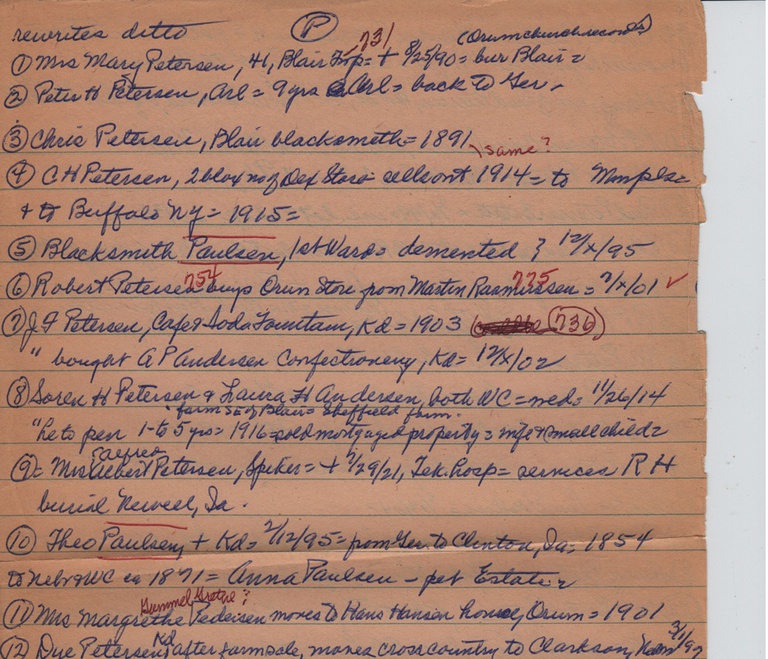 rewrites ditto (P) (Orum church records)
① Mrs Mary Petersen, 41, Blair Frp = + 8/25/90 = bur Blair =
731
② Peter H Petersen, Arl = 9 yrs Arl = back to Ger.
③ Chris Petersen, Blair blacksmith = 1891
same?
④ C H Petersen, 2 blox no of Dex Store = sells out 1914 = to Mnpls =
+ to Buffalo NY = 1915 =
⑤ Blacksmith Paulsen, 1st Ward = demented } 12/x/95
⑥ Robert Petersen 754 buys Orum Store from Martin Rasmussen 775 = 2/x/01 ✓
⑦ J F Petersen, Cafe & Soda Fountain, Kd = 1903 (736)
" bought A P Andersen Confectionery, Kd = 12/x/02
⑧ Soren H Petersen & Laura H Andersen, both WC = med = 11/26/14
farm SE of Blair = Sheffield farm.
" he to pen 1 to 5 yrs = 1916 = sold mortgaged property = wife & small child =
⑨ = Mrs Petersen, Spiker = + 7/29/21, Tek. hosp = services R H
burial Newell, Ia.
⑩ Theo Paulsen, + Kd = 2/12/95 = from Ger. to Clinton, Ia = 1854
to Nebr & WC ca 1871 = Anna Paulsen - pet Estate =
Gummel Gretje?
⑪ Mrs Margrethe Pedersen moves to Hans Hansen house, Orum = 1901
⑫ Due Petersen, Kd after farm sale, moves cross country to Clarkson, Nebr